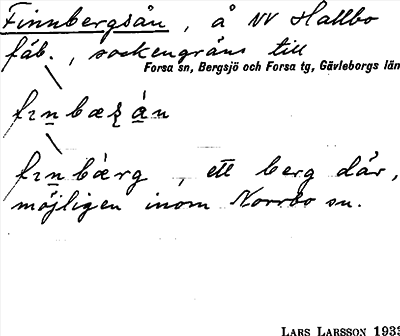 Finnbergsån, å NV Hallbo
fäb., sockengräns till
Forsa sn, Bergsjö och Forsa tg, Gävleborgs län
, ett berg där,
möjligen inom Norrbo sn.
LARS LARSSON 1933